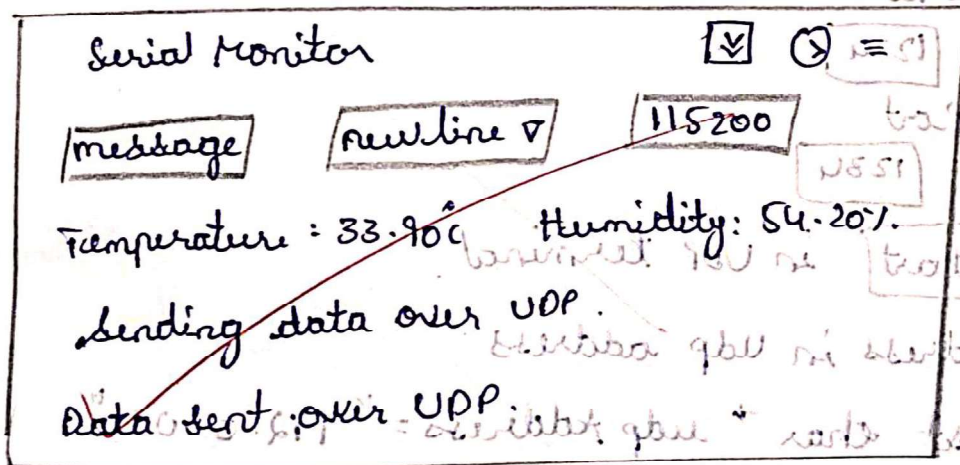 Serial Monitor
message newline 115200
Temperature : 33.90°C Humidity: 54.20%.
Sending data over UDP.
Data sent over UDP.